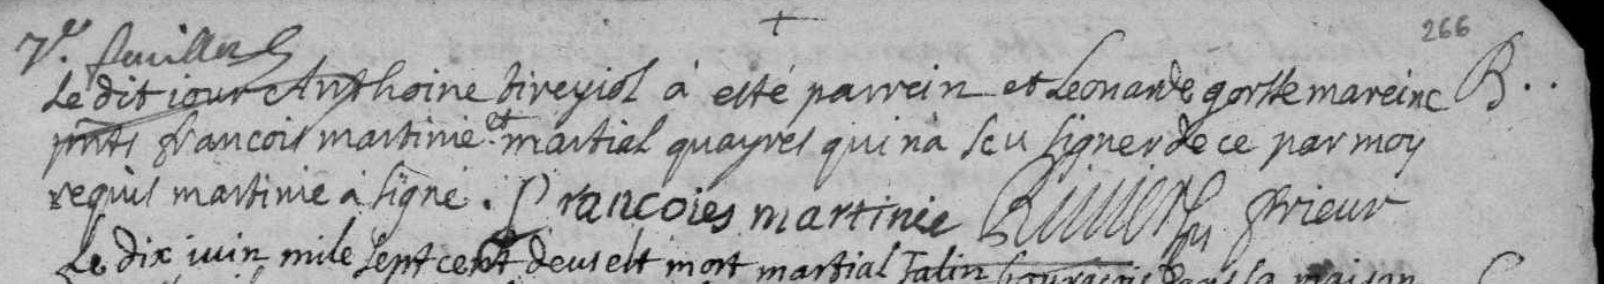 266
7e. feuillet
Le dit iour Anthoine tireyiol à esté parrein et Leonarde gorsse mareine B..
pnts francois martinie et martial quayrel qui nà sceu signer de ce par moy
requis martinie à signé. Francoies martinie prieur
Le dix iuin mile sept cent deus est mort martial Jalin bourgois dans sa maison